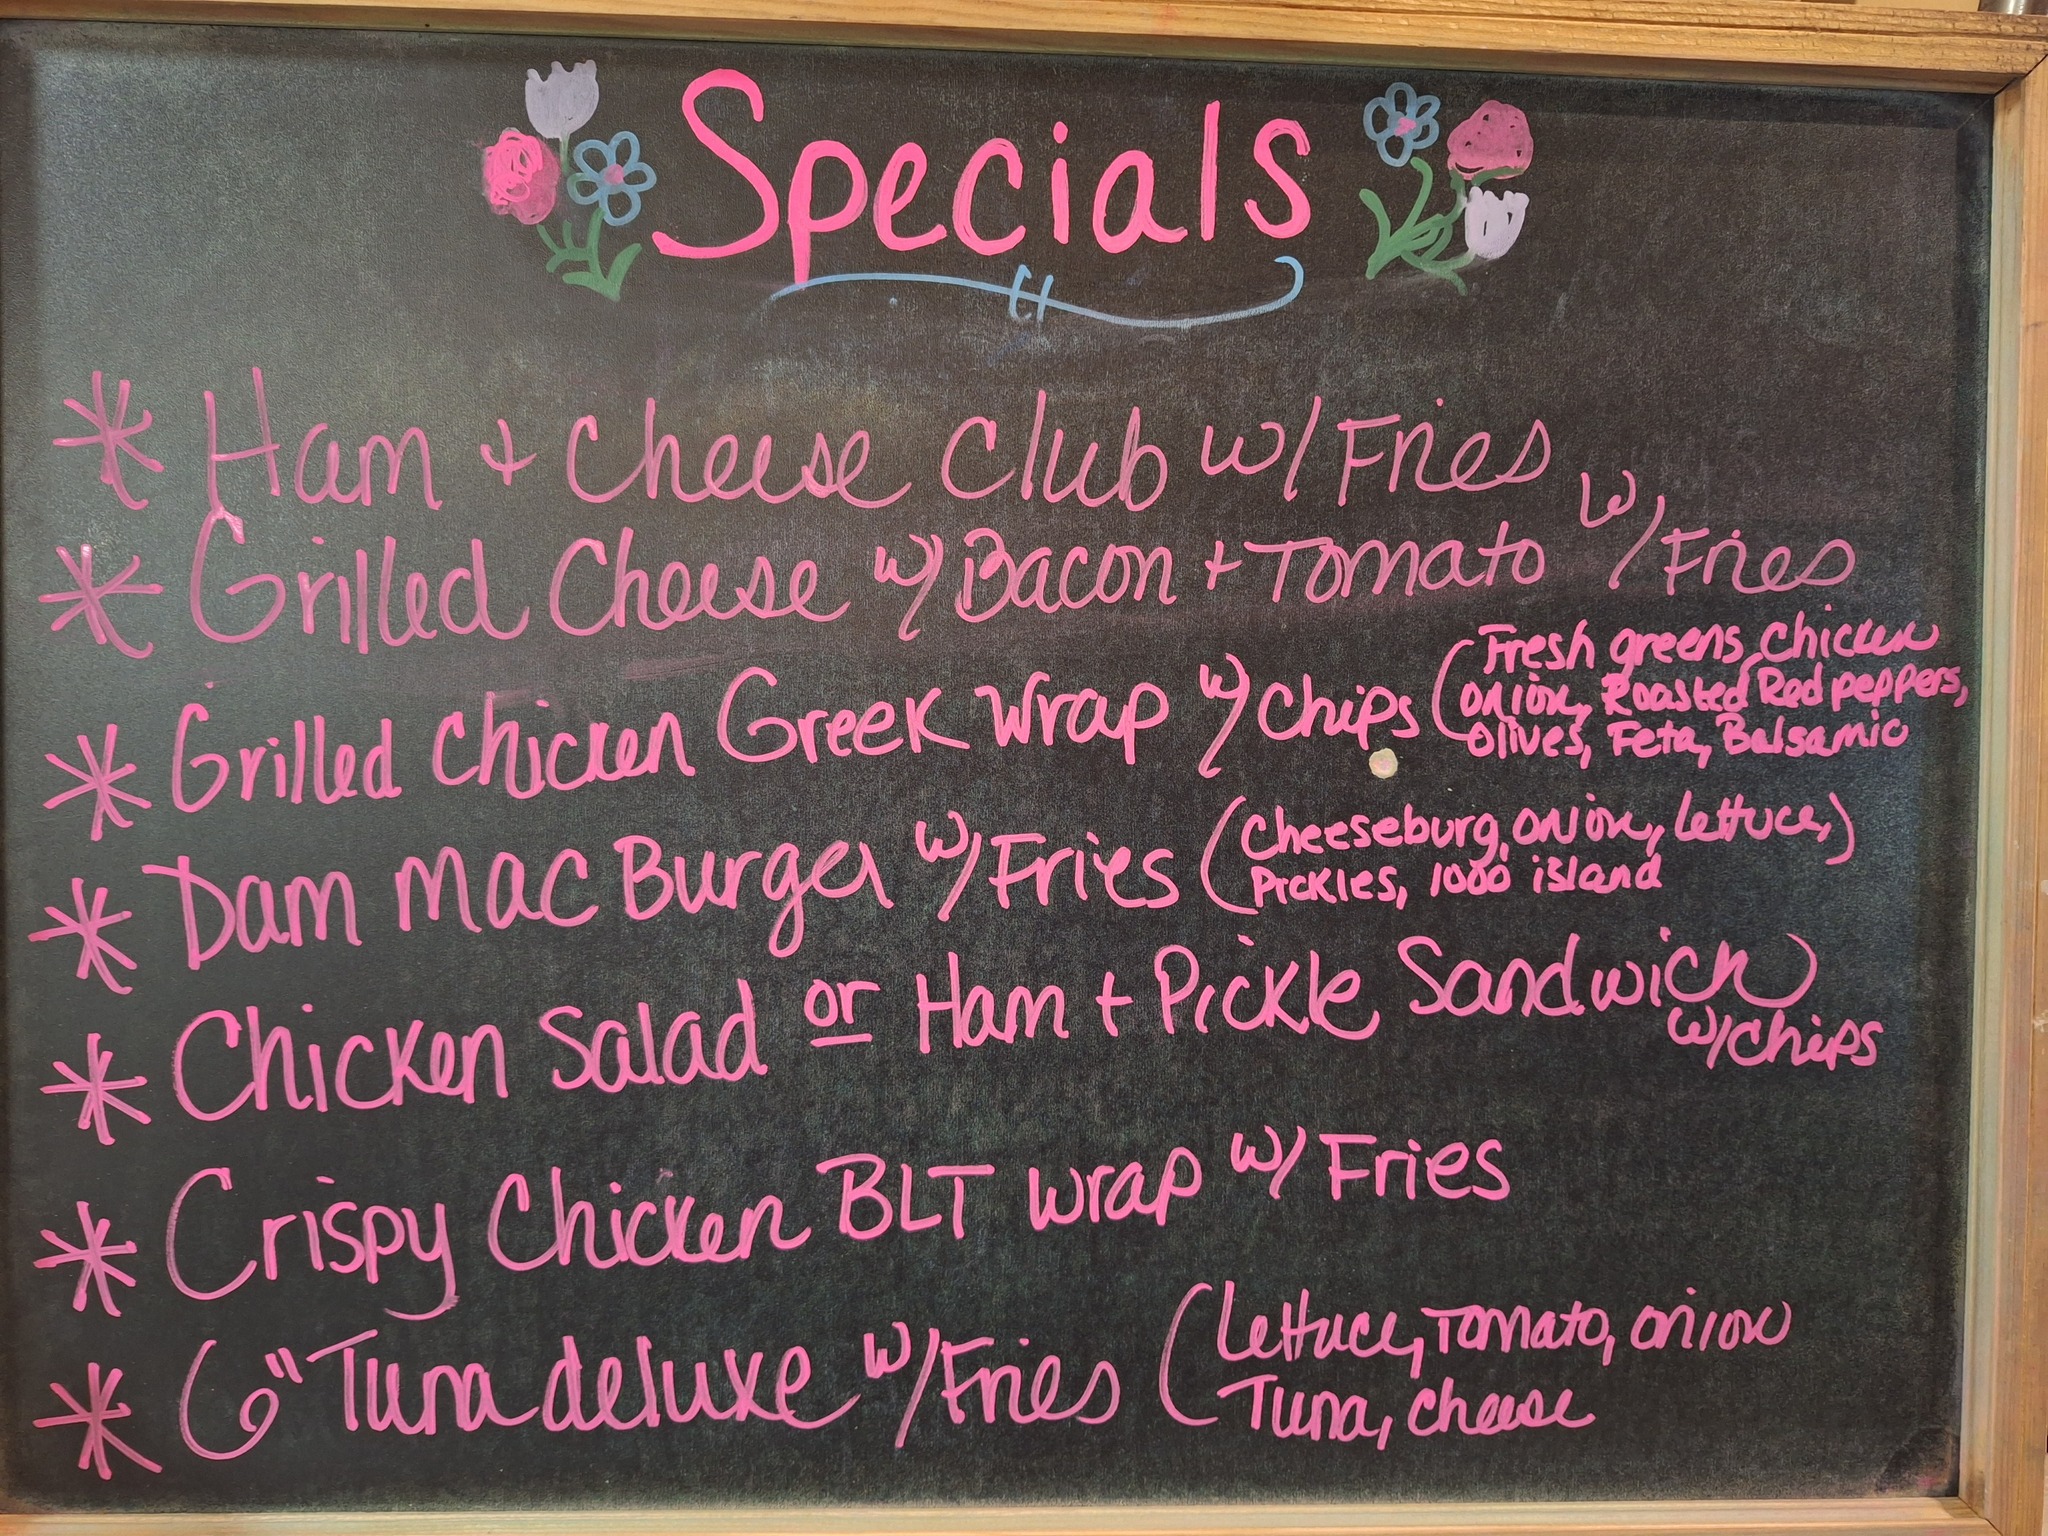 Specials
* Ham + Cheese Club w/ Fries
* Grilled Cheese w/ Bacon + Tomato w/ Fries
* Grilled Chicken Greek Wrap w/ Chips (Fresh greens, Chicken
onion, Roasted Red peppers,
Olives, Feta, Balsamic
* Dam Mac Burger w/ Fries (Cheeseburg, onion, lettuce,)
Pickles, 1000 island
* Chicken Salad or Ham + Pickle Sandwich
w/ Chips
* Crispy Chicken BLT wrap w/ Fries
* 6" Tuna deluxe w/ Fries (Lettuce, Tomato, onion
Tuna, cheese